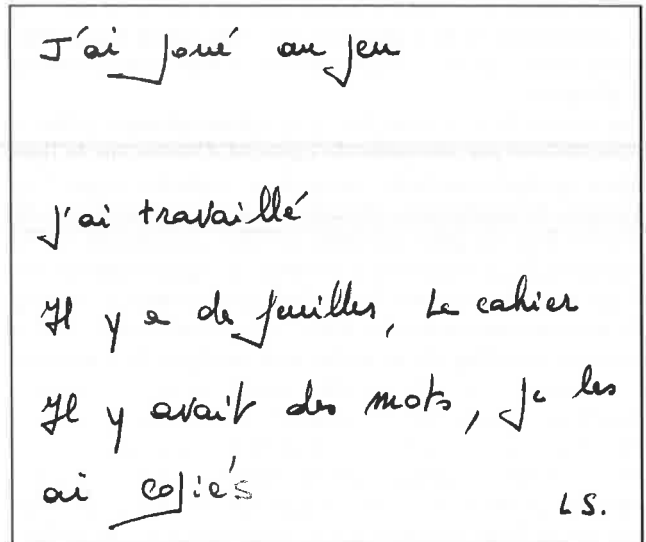 J'ai joué au jeu
j'ai travaillé
Il y a de feuilles, Le cahier
Il y avait des mots, je les
ai copiés
L S.